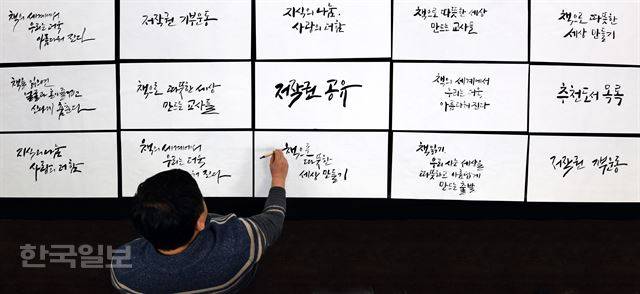 책의 세계에서
우리는 더욱
아름다워진다
저작권 기부운동
지식의 나눔,
사랑의 더함
책으로 따뜻한 세상
만드는 교사들
책으로 따뜻한
세상 만들기
책을 읽으면
얼굴과
책으로 따뜻한 세상
만드는 교사들
저작권 공유
책의 세계에서
우리는 더욱
아름다워진다
추천도서 목록
지식의 나눔
사랑의 더함
책의 세계에서
우리는 더욱
진다
책으로
따뜻한
세상 만들기
책읽기,
우리 사는 세상을
따뜻하고 아름답게
만드는 출발
저작권 기부운동
한국일보